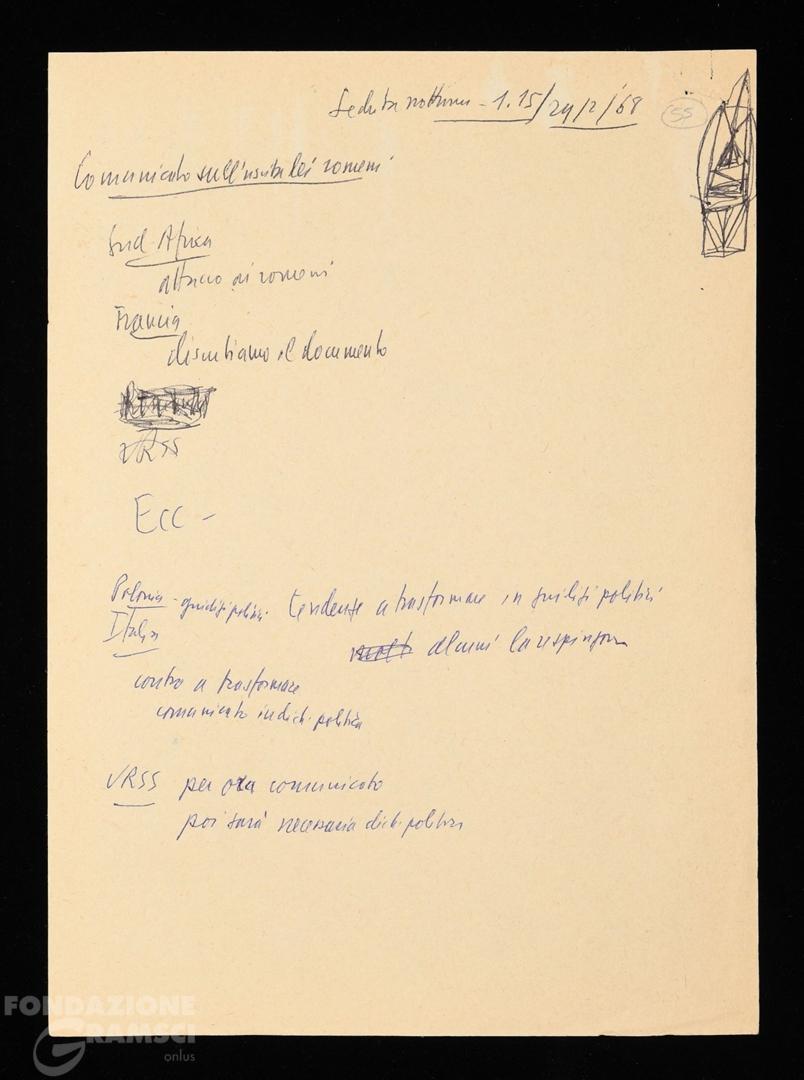 Seduta notturna - 1.15/29/2/'68
55
Comunicato sull'uscita dei romeni
Sud-Africa
attacco ai romeni
Francia
discutiamo il documento
URSS
Ecc -
Polonia - giudizi politici. tendenze a trasformare in giudizi politici
Italia
alcuni la respingono
contro a trasformare
comunicato in dich. politica
URSS per ora comunicato
poi sarà necessaria dich. politica
FONDAZIONE
GRAMSCI
onlus